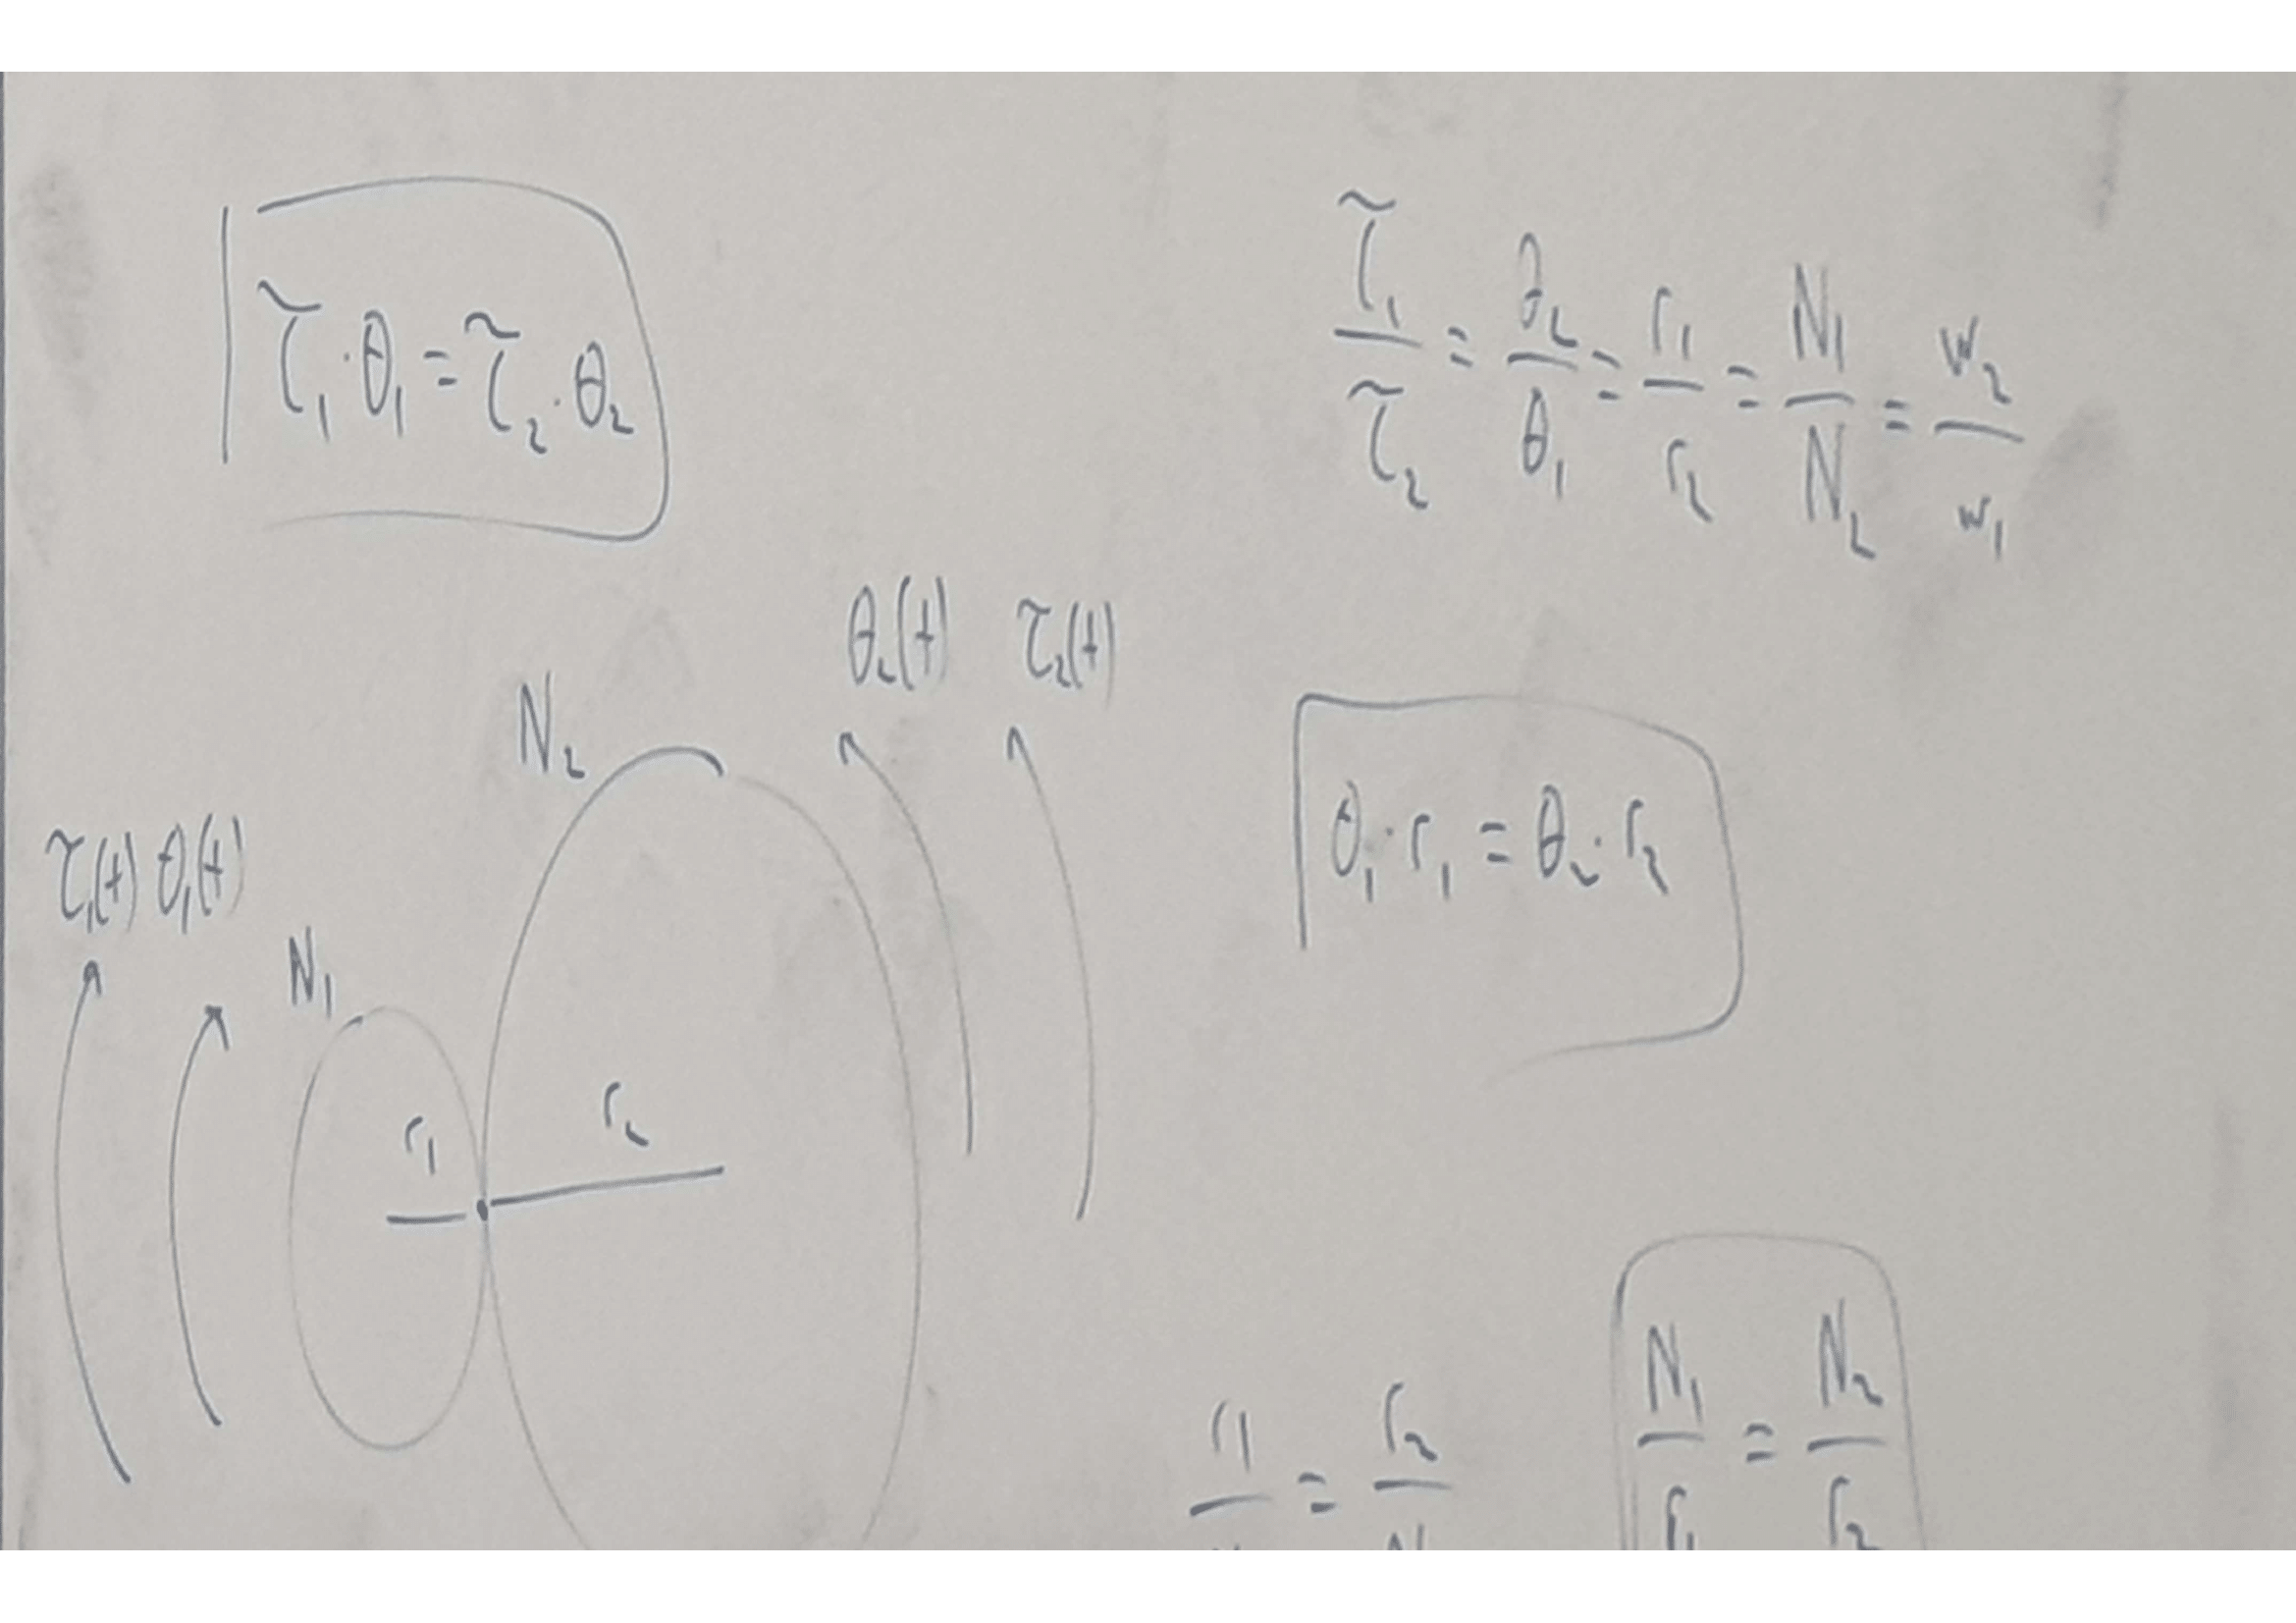 τ₁·θ₁ = τ₂·θ₂
τ₁/τ₂ = θ₂/θ₁ = r₁/r₂ = N₁/N₂ = w₂/w₁
θ₂(t) τ₂(t)
N₂
τ₁(t) θ₁(t)
N₁
θ₁·r₁ = θ₂·r₂
r₁ r₂
r₁/ = r₂/
N₁/r₁ = N₂/r₂